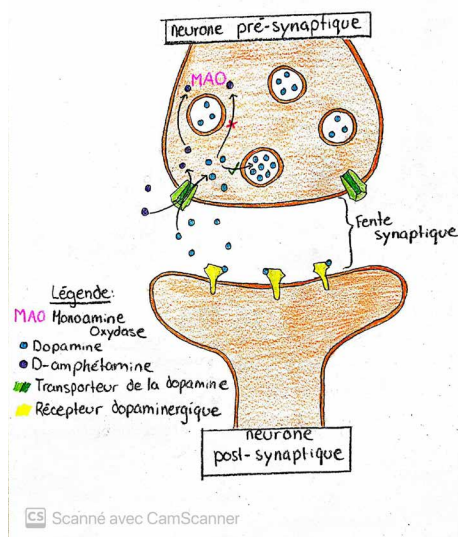 neurone pré-synaptique
MAO
Fente
synaptique
Légende:
MAO Monoamine
Oxydase
Dopamine
D-amphétamine
Transporteur de la dopamine
Récepteur dopaminergique
neurone
post-synaptique
CS Scanné avec CamScanner